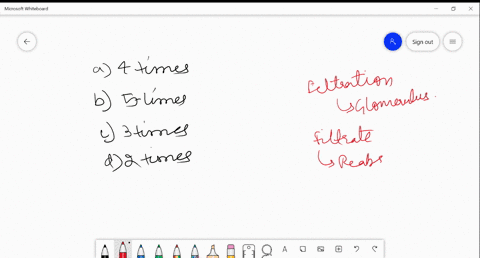 Microsoft Whiteboard
Sign out
a) 4 times
b) 5 times
c) 3 times
d) 2 times
Filtration
↳ Glomerulus.
Filtrate
↳ Reabs
A